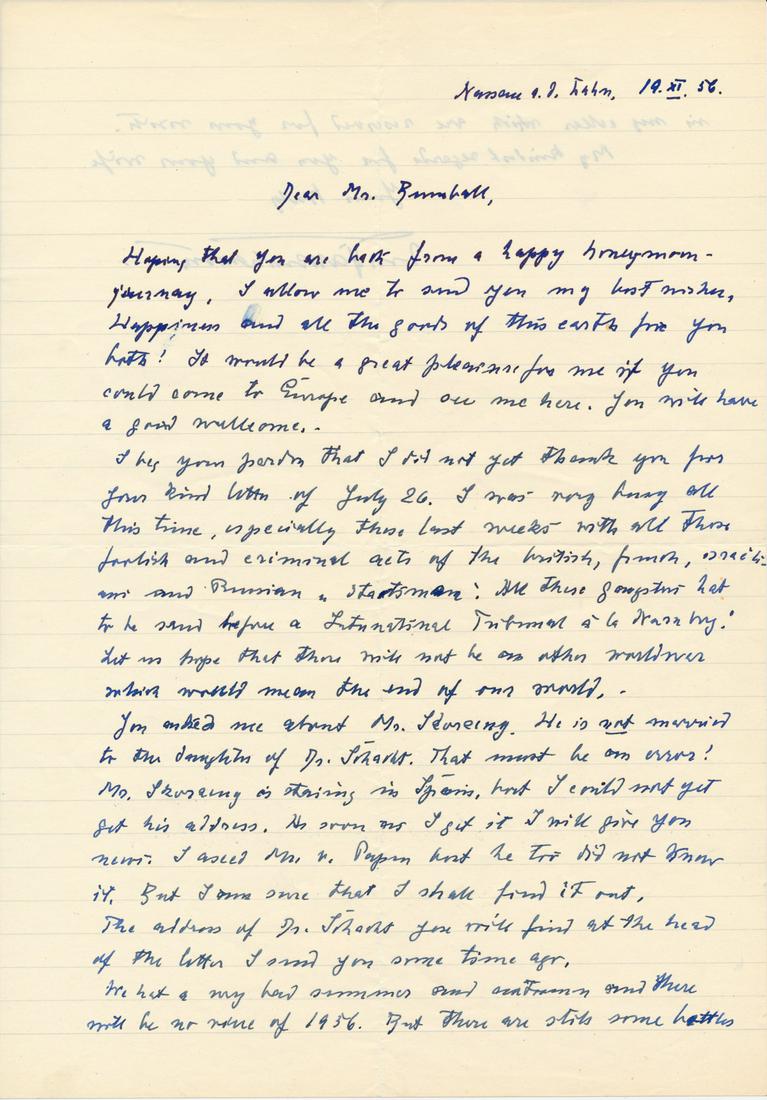 Nassau a. d. Lahn, 19. XI. 56.
Dear Mr. Rumball,
Hoping that you are back from a happy honeymoon-
journay, I allow me to send you my best wishes,
Happiness and all the goods of this earth for you
both! It would be a great pleasure for me if you
could come to Europe and see me here. You will have
a good wellcome. -
I beg your pardon that I did not yet thank you for
your kind letter of July 26. I was very busy all
this time, especially these last weeks with all those
foolish and criminal acts of the british, french, israeli-
ans and Russian "Staatsmen". All these gangsters hat
to be send before a International Tribunal à la Nurnbg.!
Let us hope that there will not be an other worldwar
which would mean the end of our world. -
You asked me about Mr. Skorzeny. He is not married
to the daughter of Dr. Schacht. That must be an error!
Mr. Skorzeny is staing in Spain, but I could not yet
get his address. As soon as I get it I will give you
news. I asced Mr. v. Papen but he too did not know
it. But I am sure that I shall find it out.
The address of Dr. Schacht you will find at the head
of the letter I send you some time ago.
We hat a very bad summer and autumn and there
will be no wine of 1956. But there are still some bottles
in my cellar which are reserved for your visit.
My kindest regards for you and your wife